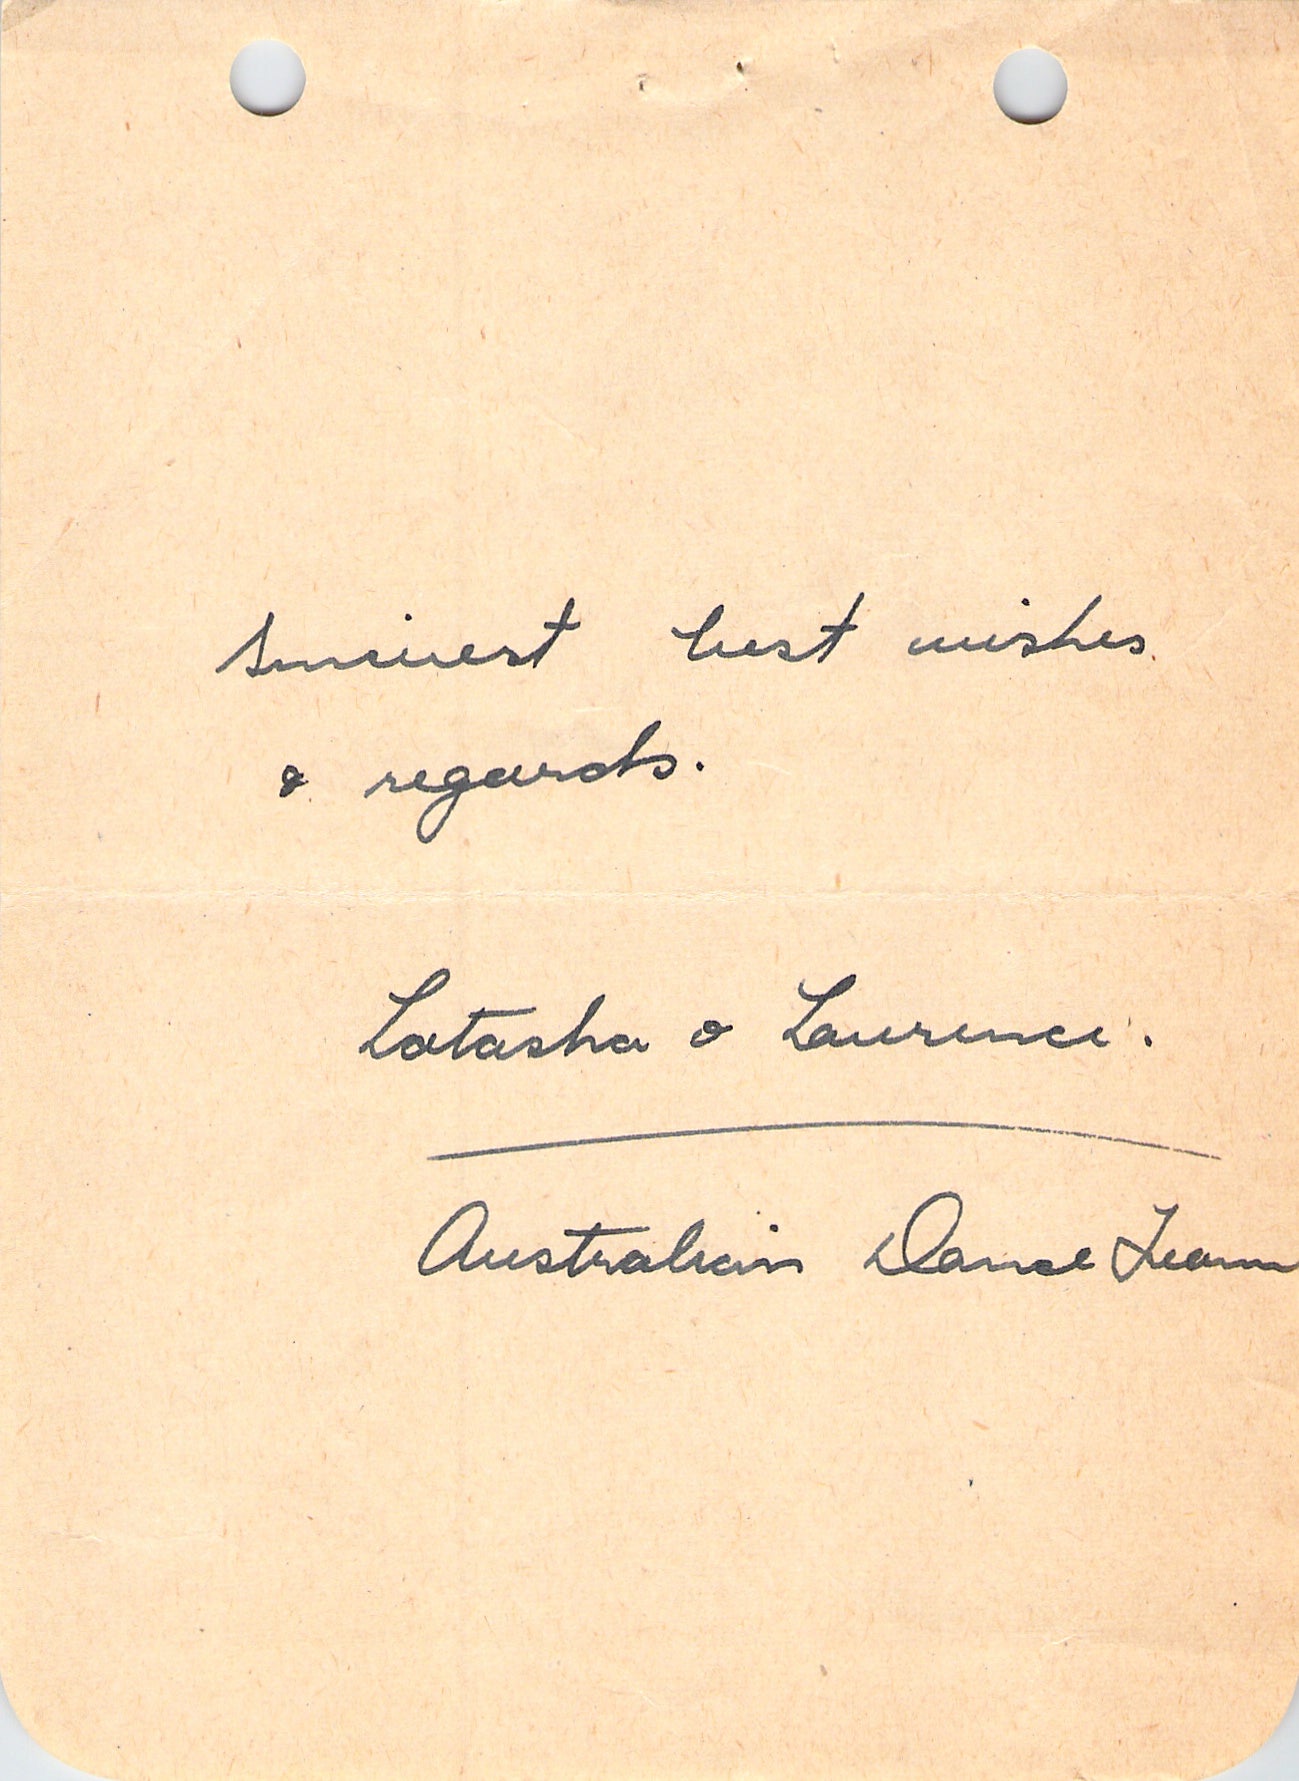 Sincerest best wishes
& regards.
Latasha & Laurence.
Australian Dance Team